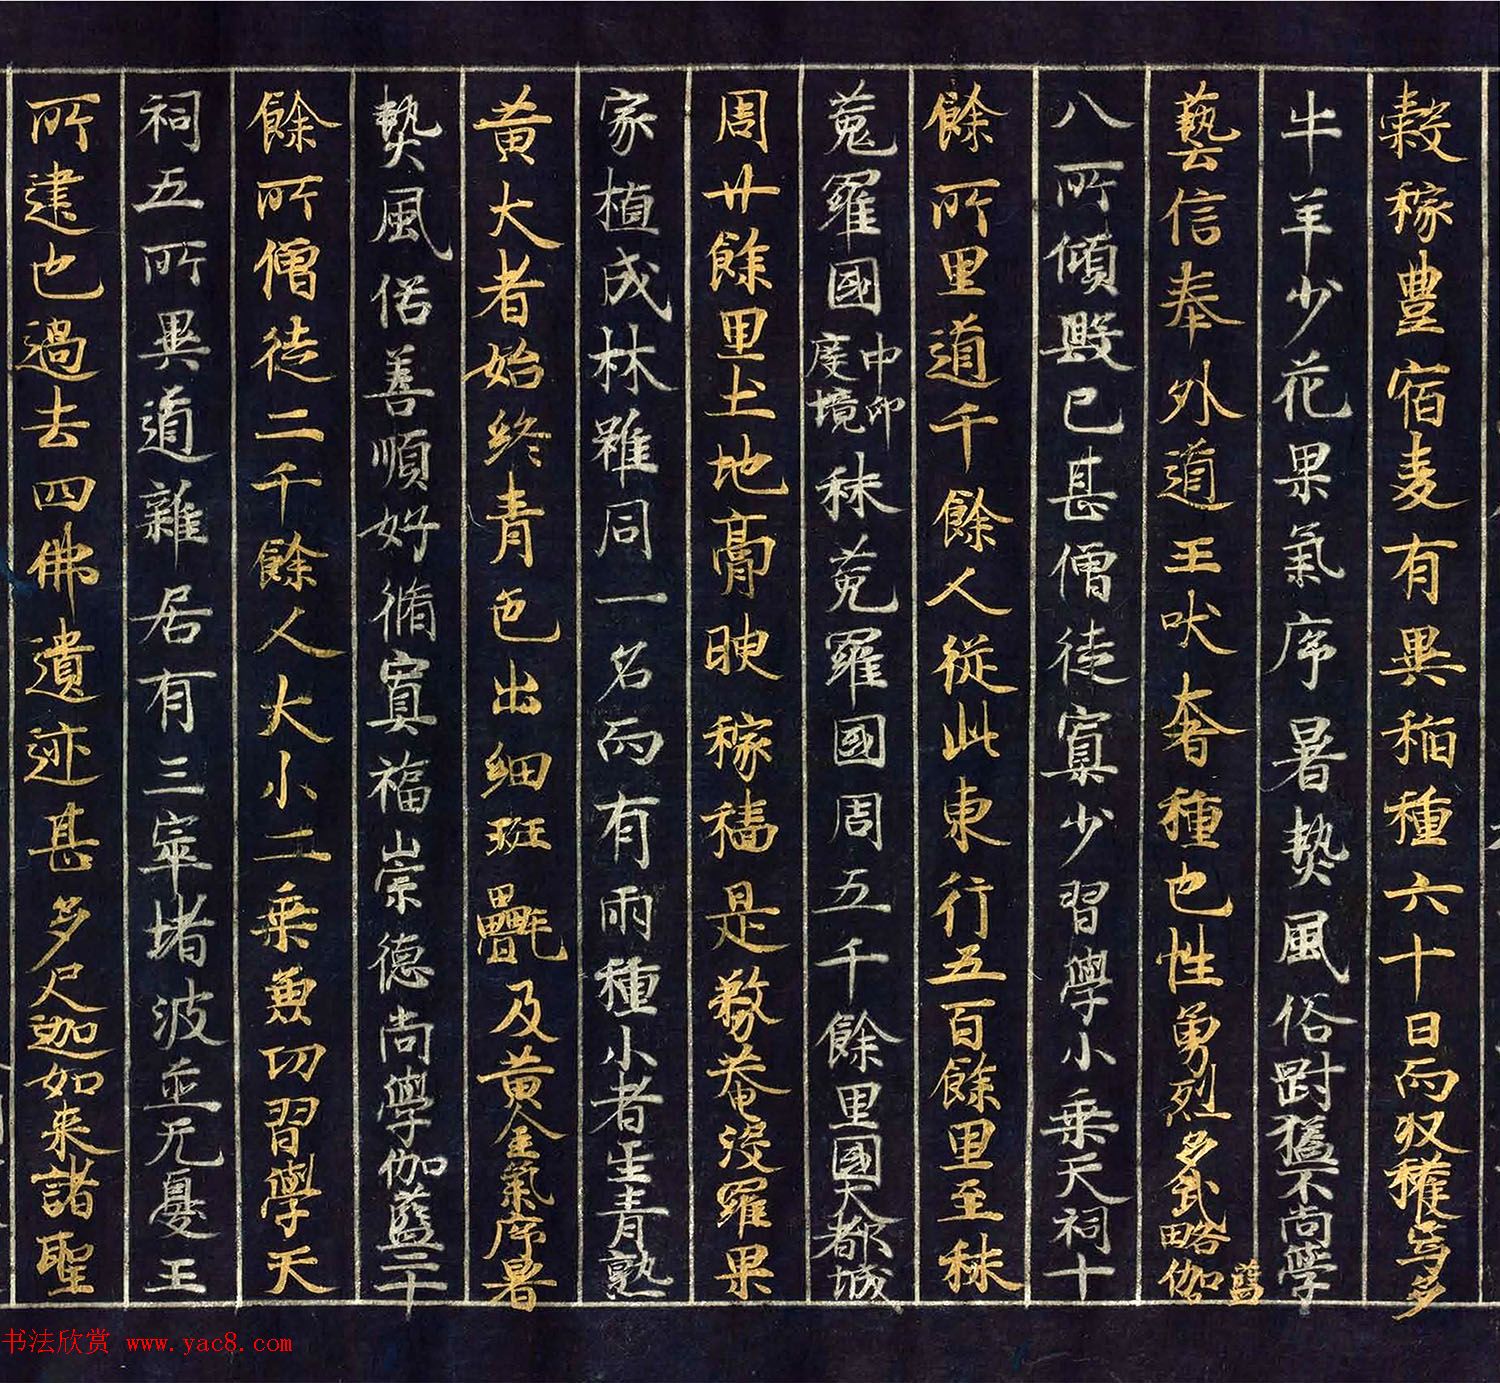 穀稼豊宿麦有異稲種六十日而収穫焉多
牛羊少花果氣序暑熱風俗剛猛不尚學
藝信奉外道王吠奢種也性勇烈多武略伽藍
八所傾毀已甚僧徒寡少習學小乗天祠十
餘所里道千餘人従此東行五百餘里至秣
菟羅國中印度境秣菟羅國周五千餘里國大都城
周廿餘里土地膏腴稼穡是務菴没羅果
家植成林雖同一名而有兩種小者生青熟
黄大者始終青色出細班氎及黄金氣序暑
熱風俗善順好脩冥福崇德尚學伽藍二十
餘所僧徒二千餘人大小二乗兼功習學天
祠五所異道雜居有三窣堵波並无憂王
所建也過去四佛遺迹甚多尺迦如来諸聖
书法欣赏 www.yac8.com